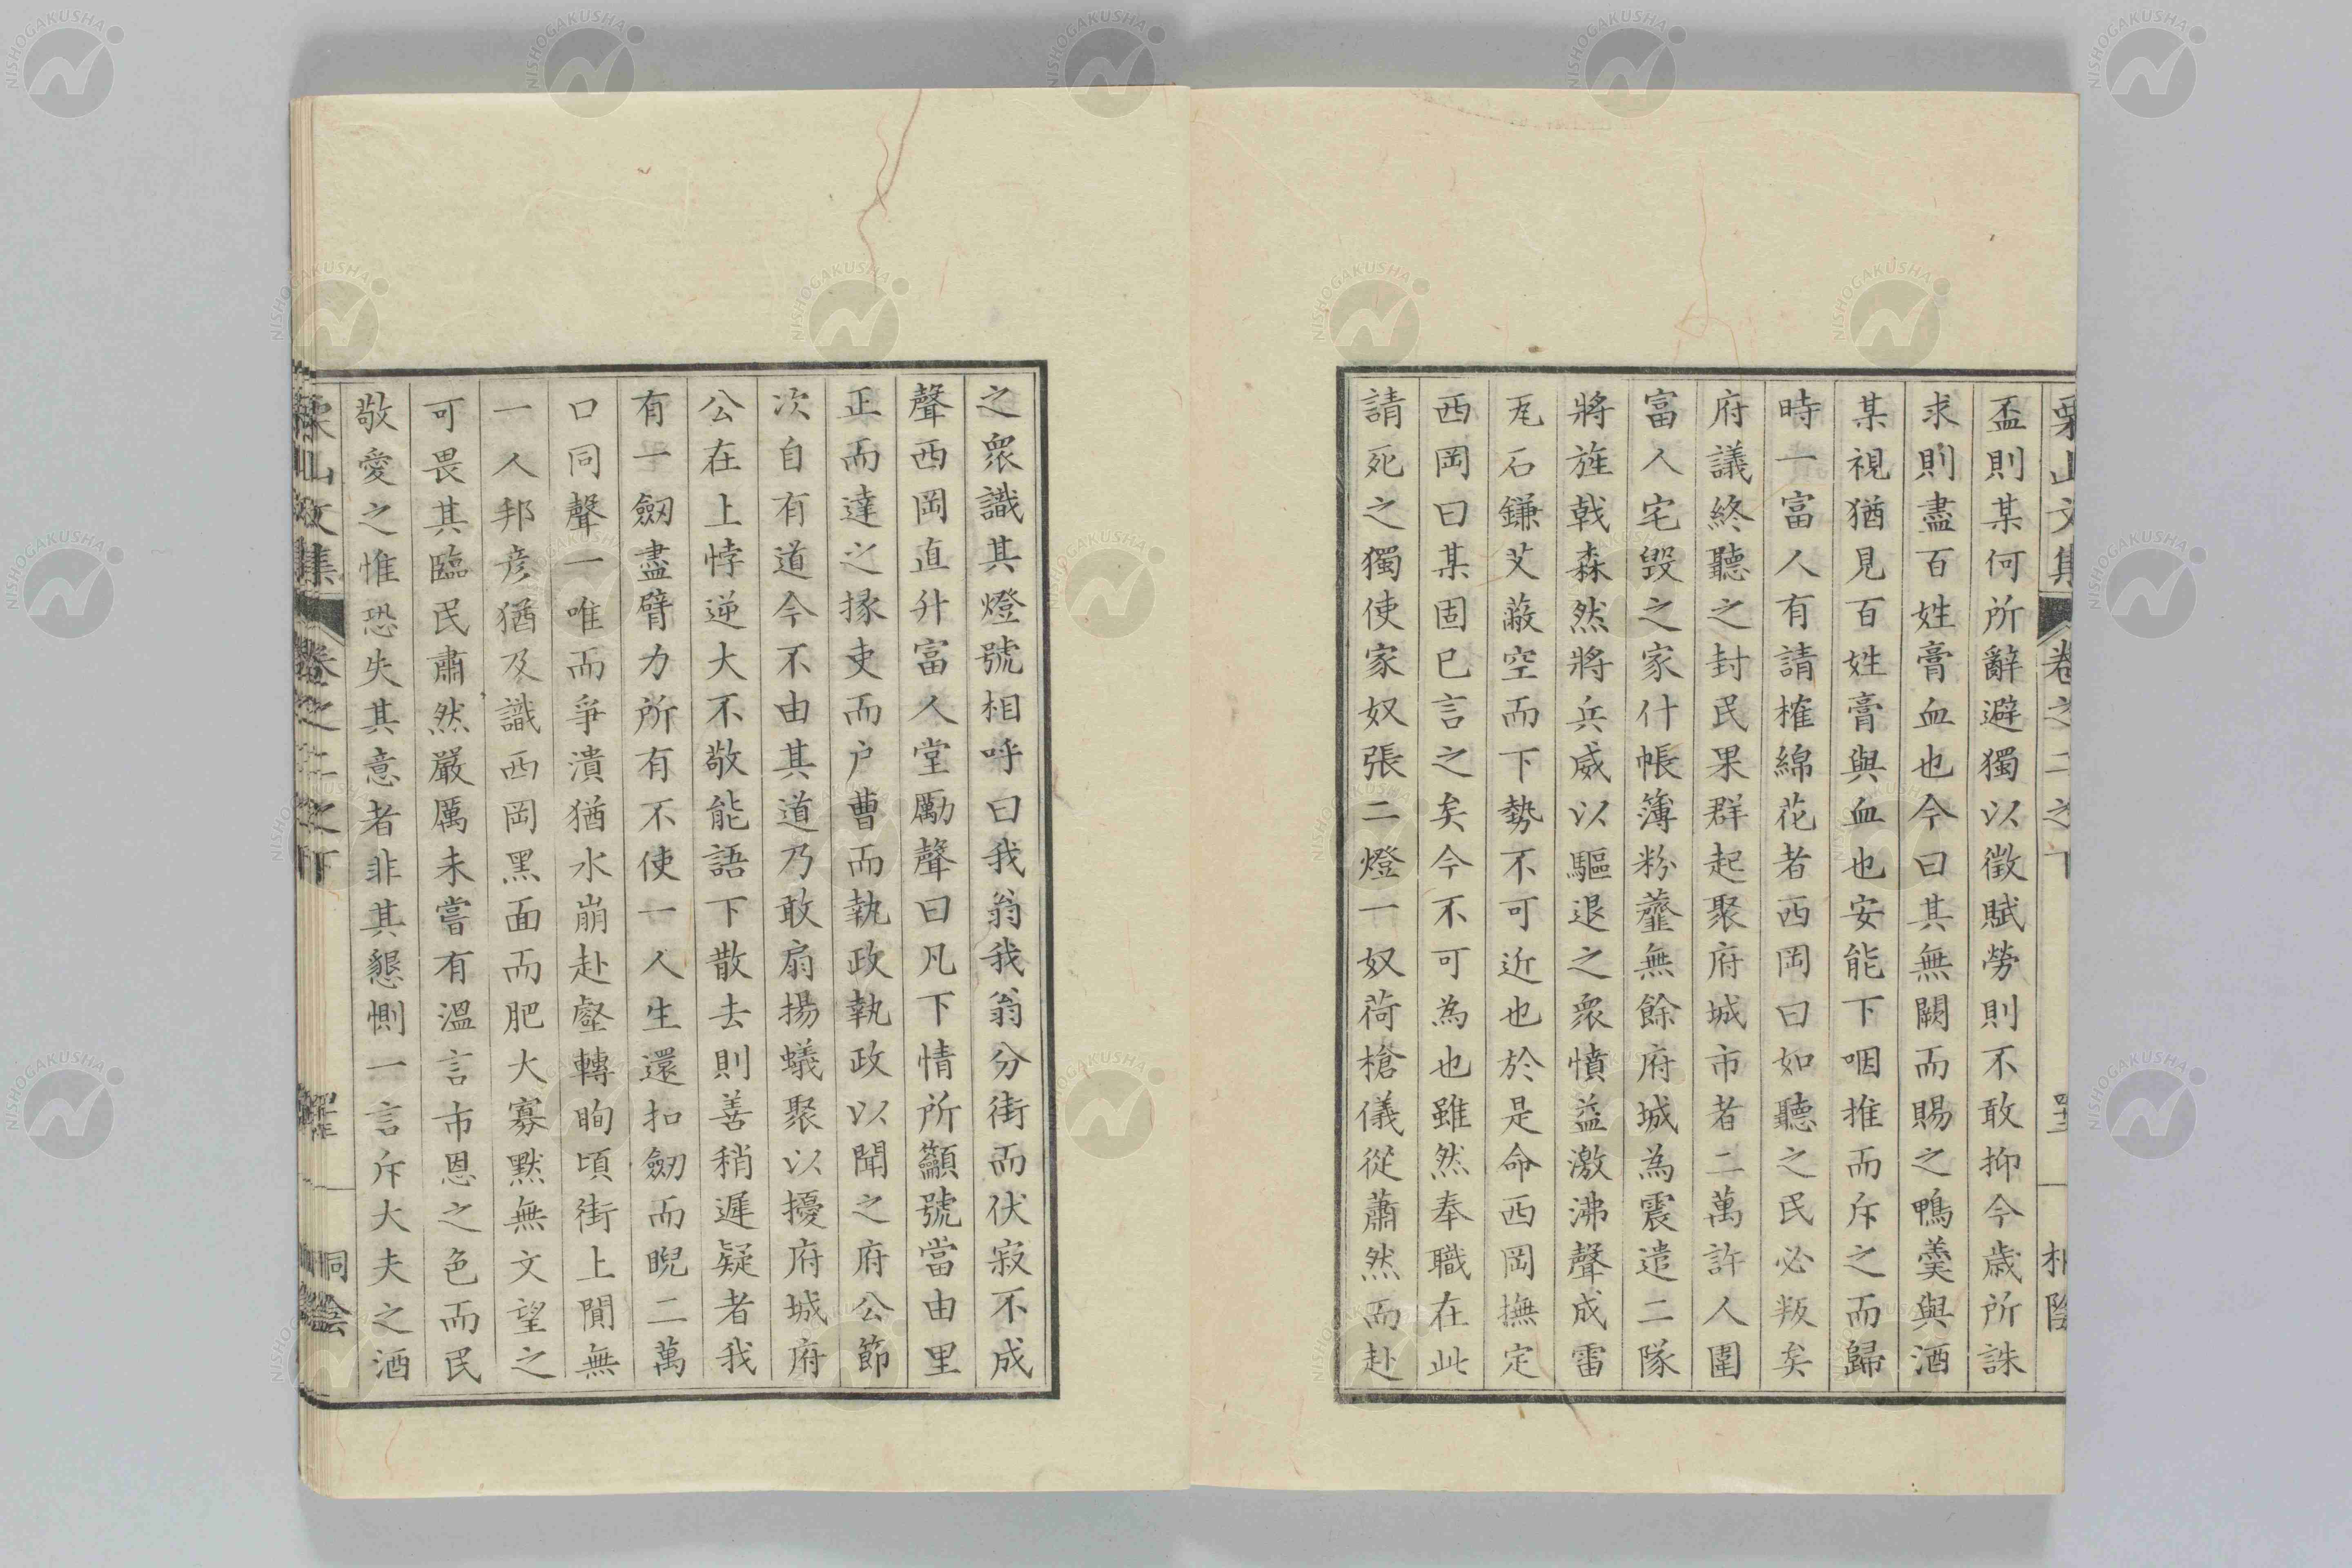 盃則某何所辭避獨以徵賦勞則不敢抑今歲所誅
求則盡百姓膏血也今曰其無闕而賜之鴨羹與酒
某視猶見百姓膏與血也安能下咽推而斥之而歸
時一富人有請榷綿花者西岡曰如聽之民必叛矣
府議終聽之封民果群起聚府城市者二萬許人圍
富人宅毀之家什帳簿粉虀無餘府城為震遣二隊
將旌戟森然將兵威以驅退之衆憤益激沸聲成雷
瓦石鎌艾蔽空而下勢不可近也於是命西岡撫定
西岡曰某固已言之矣今不可為也雖然奉職在此
請死之獨使家奴張二燈一奴荷槍儀從蕭然而赴
之衆識其燈號相呼曰我翁我翁分街而伏寂不成
聲西岡直升富人堂勵聲曰凡下情所籲號當由里
正而達之掾吏而戶曹而執政執政以聞之府公節
次自有道今不由其道乃敢扇揚蟻聚以擾府城府
公在上悖逆大不敬能語下散去則善稍遲疑者我
有一劔盡臂力所有不使一人生還扣劔而睨二萬
口同聲一唯而爭潰猶水崩赴壑轉眴頃街上闃無
一人邦彥猶及識西岡黑面而肥大寡默無文望之
可畏其臨民肅然嚴厲未嘗有溫言市恩之色而民
敬愛之惟恐失其意者非其懇惻一言斥大夫之酒
栗山文集
卷之二之下
NISHOGAKUSHA